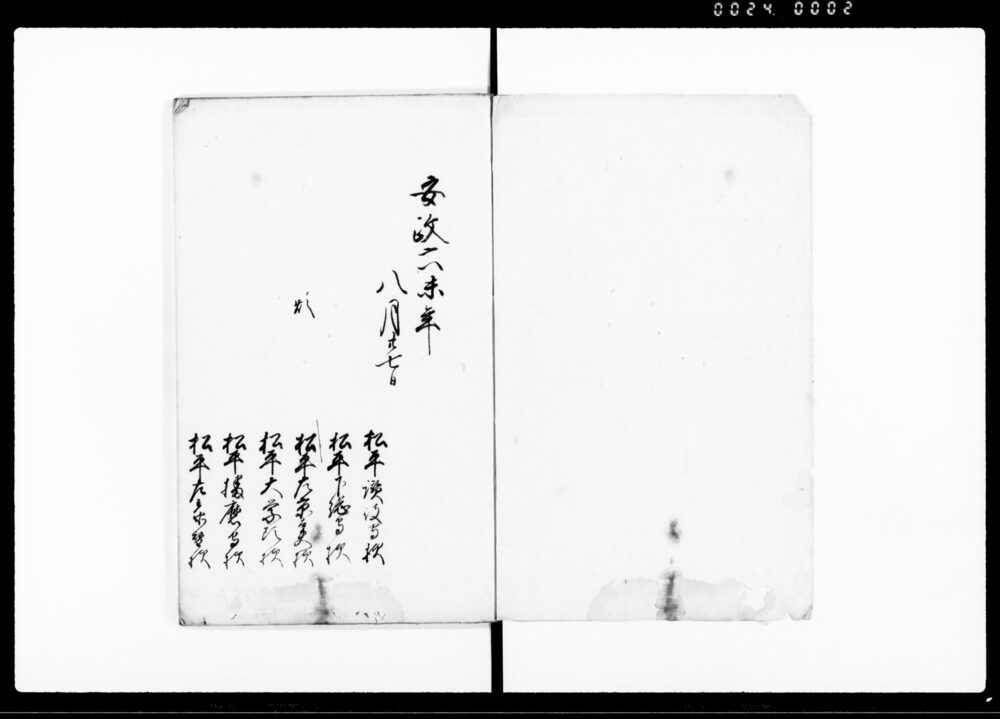 0024. 0002
安政六未年
八月廿七日
松平讃岐守様
松平下総守様
松平左京大夫様
松平大学頭様
松平播磨守様
松平左兵衛督様